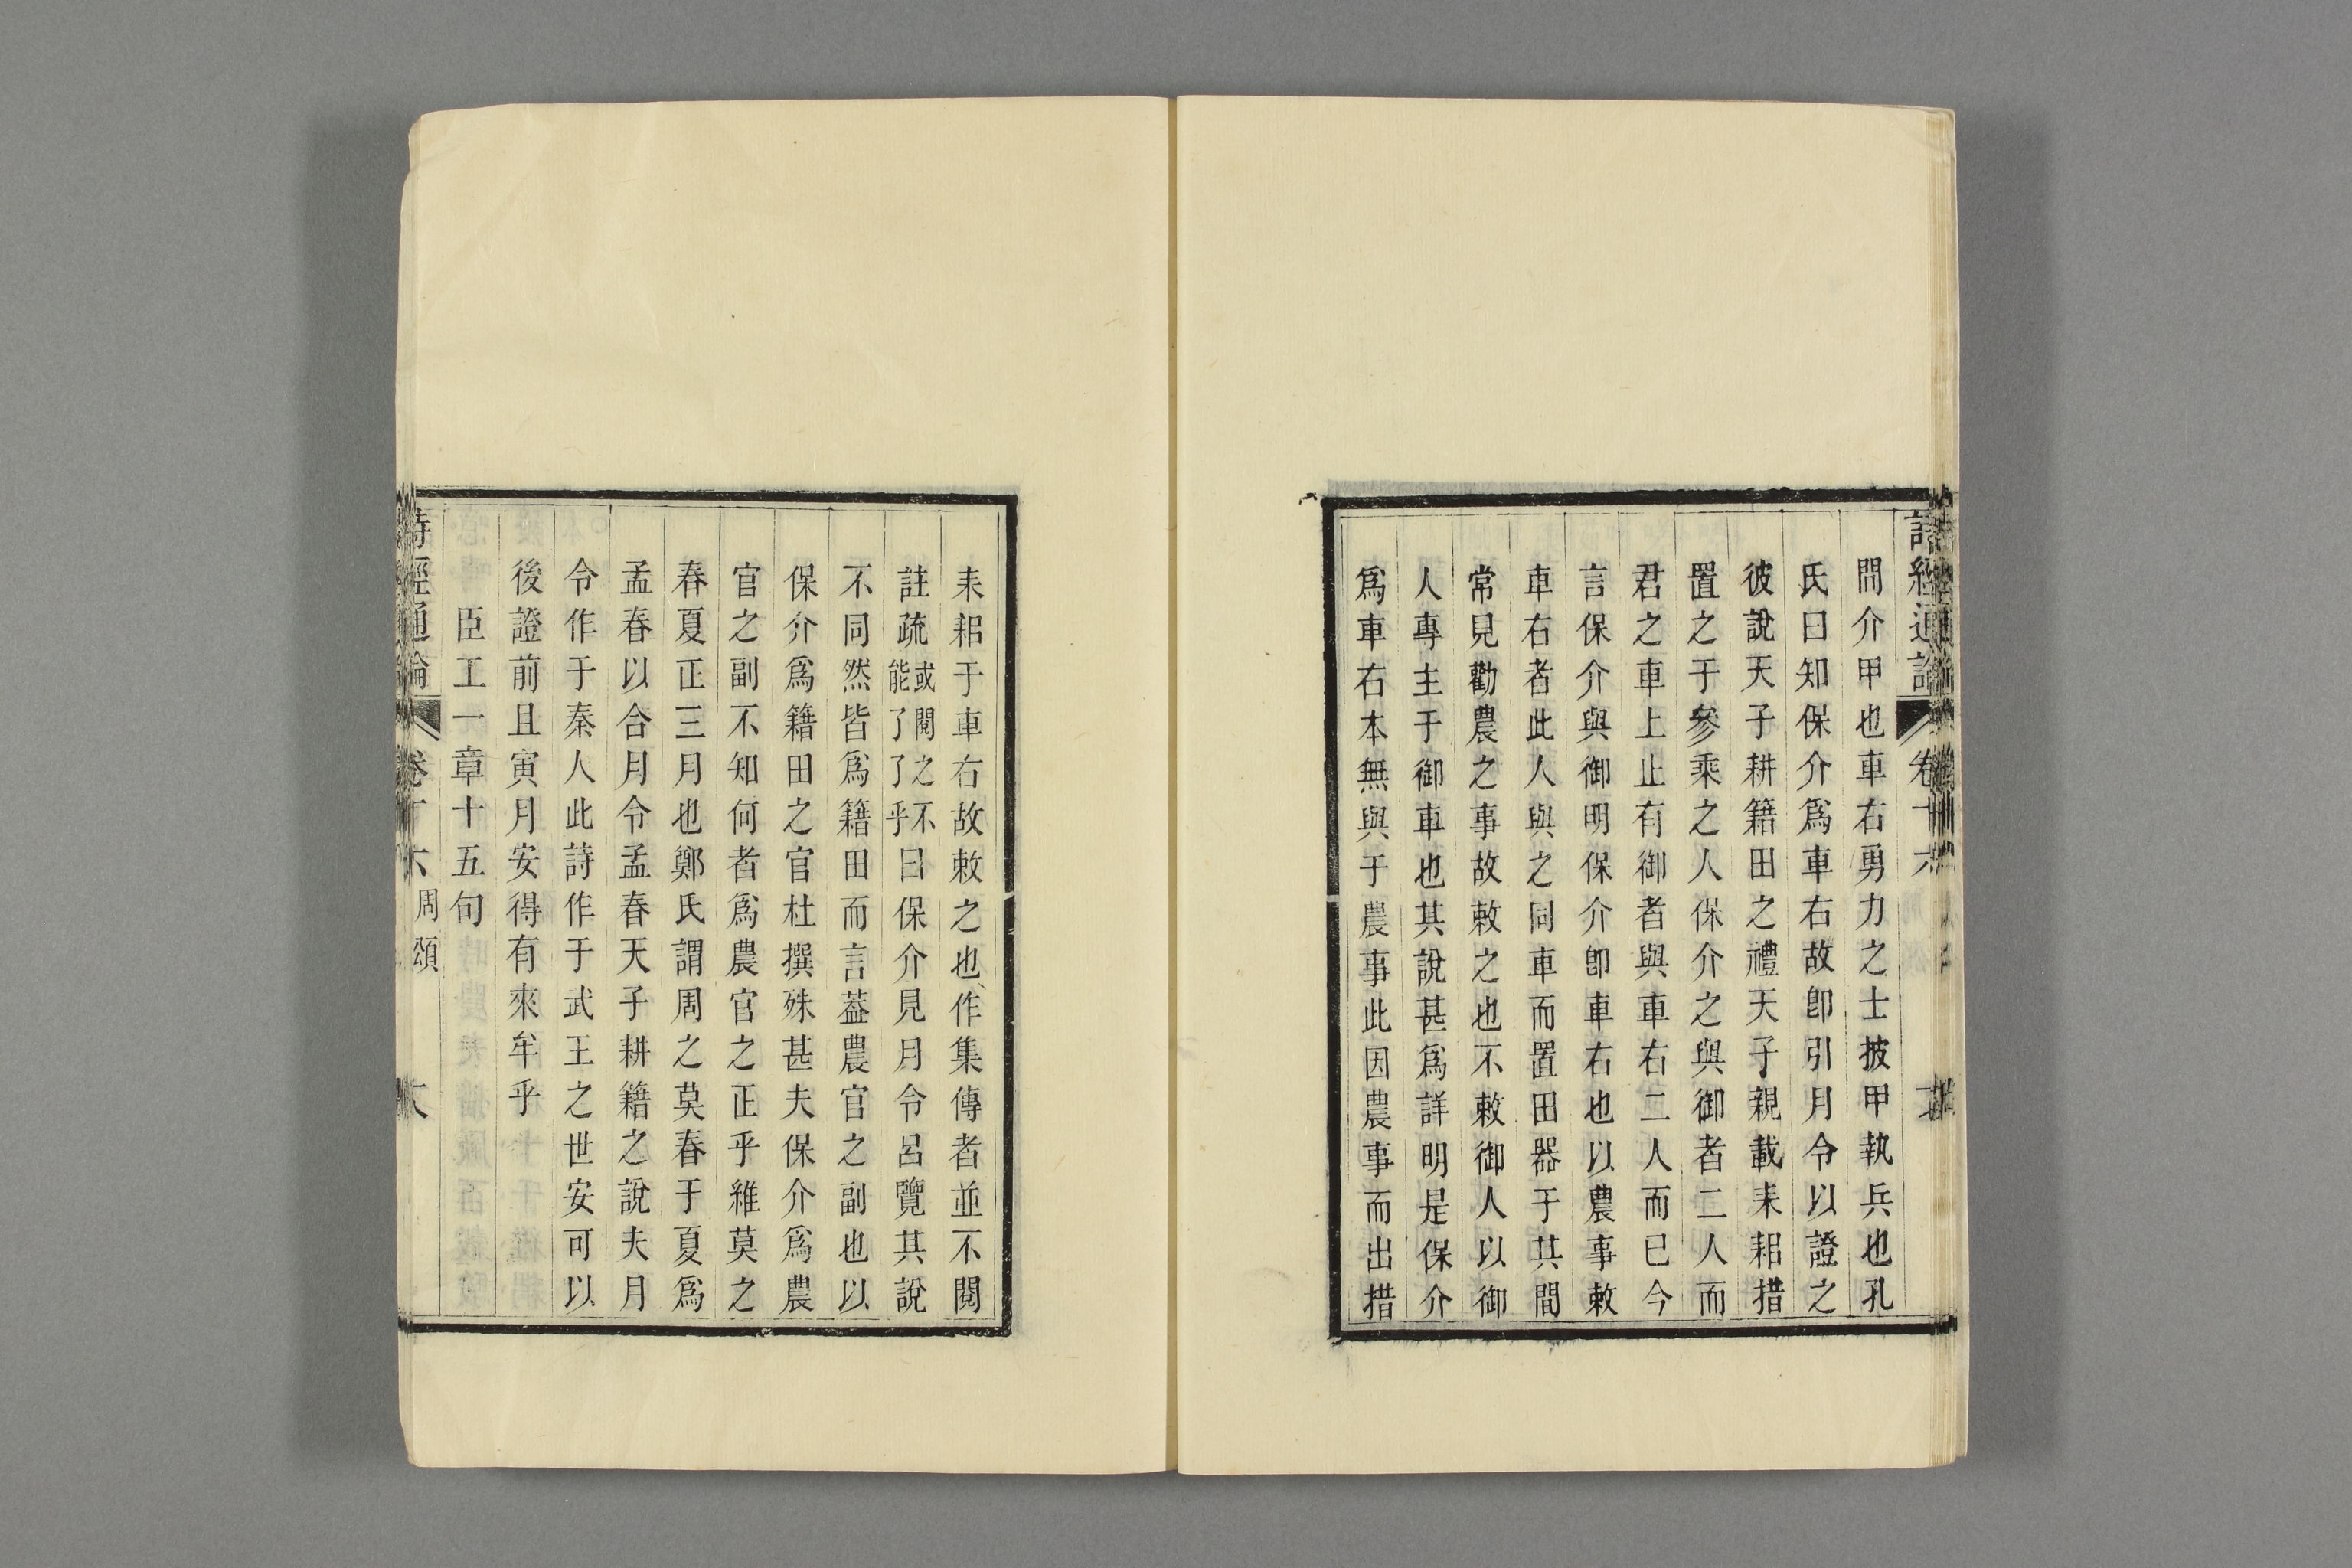 詩經通論 卷十六
間介甲也車右勇力之士披甲執兵也孔
氏曰知保介爲車右故卽引月令以證之
彼說天子耕籍田之禮天子親載耒耜措
置之于參乘之人保介之與御者二人而
君之車上止有御者與車右二人而已今
言保介與御明保介卽車右也以農事敕
車右者此人與之同車而置田器于其間
常見勸農之事故敕之也不敕御人以御
人專主于御車也其說甚爲詳明是保介
爲車右本無與于農事此因農事而出措
耒耜于車右故敕之也、作集傳者並不閱
註疏或閱之不能了了乎曰保介見月令呂覽其說
不同然皆爲籍田而言葢農官之副也以
保介爲籍田之官杜撰殊甚夫保介爲農
官之副不知何者爲農官之正乎維莫之
春夏正三月也鄭氏謂周之莫春于夏爲
孟春以合月令孟春天子耕籍之說夫月
令作于秦人此詩作于武王之世安可以
後證前且寅月安得有來牟乎
臣工一章十五句
詩經通論 卷十六 周頌